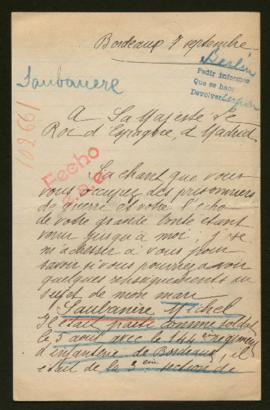 Bordeaux 7 septembre
Berlin
Pedir informes
Que se hace
Devolver
Saubanere
102661
A Sa Majesté le
Roi d'Espagne, à Madrid
Fecho
Sachant que vous
vous occupez des prisonniers
de guerre et votre
de votre grande bonté étant
venu jusqu'à moi, je
m'adresse à vous pour
savoir si vous pourriez avoir
quelques renseignements au
sujet de mon mari
Saubanere Michel
Il était parti comme soldat
le 5 août avec le 144 regiment
d'infanterie de Bordeaux, il
était de la 2 eme section de